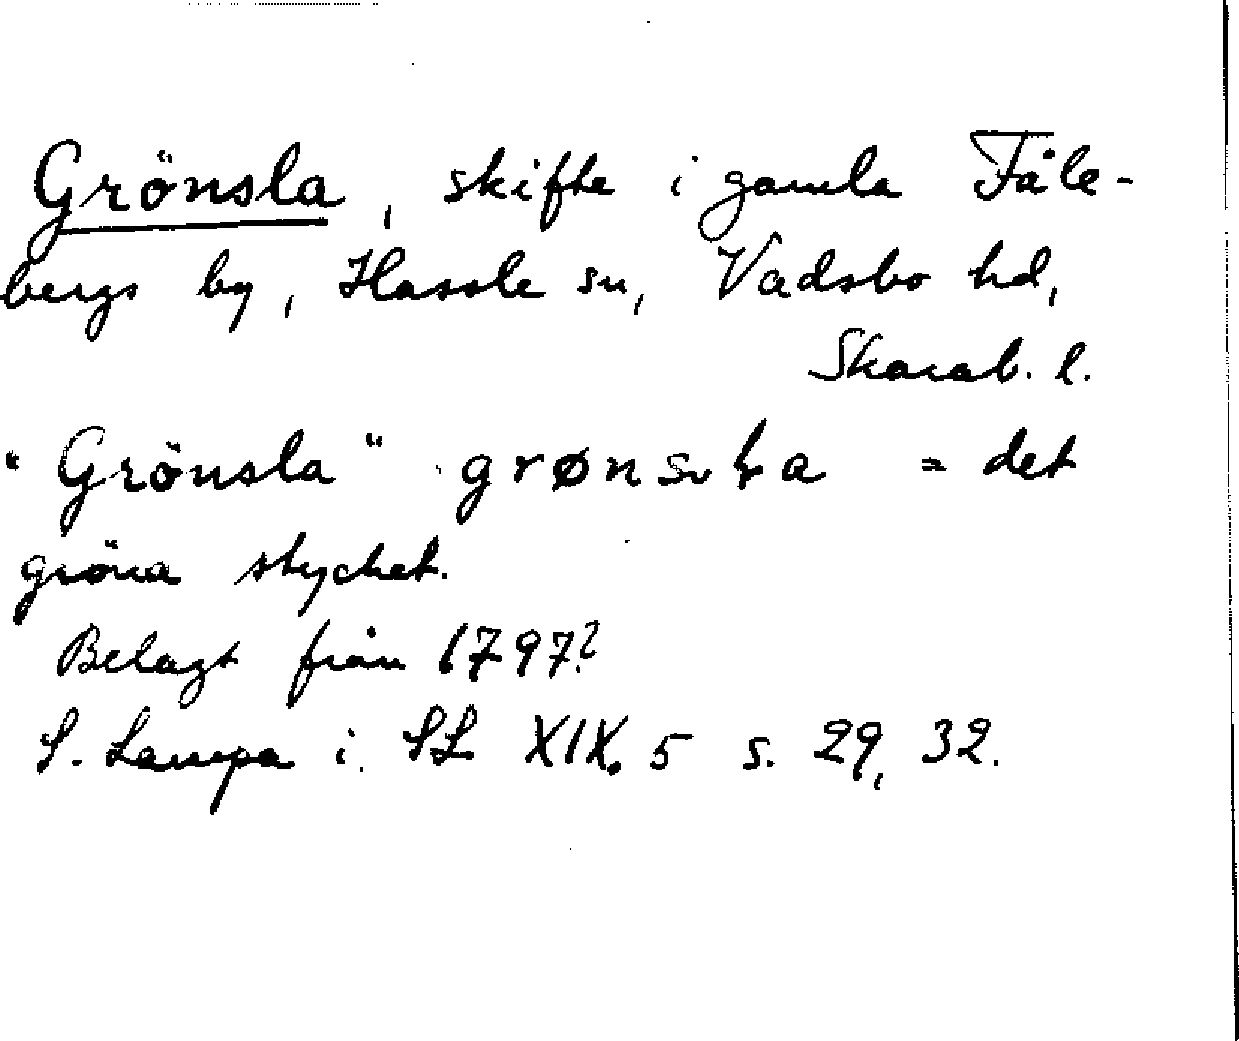 Grönsla, skifte i gamla Fåle-
bergs by, Hassle sn, Vadsbo hd,
Skarab. l.
"Grönsla" grønsla = det
gröna stycket.
Belagt från 1797?
S. Lampa i SL XIX. 5 s. 29, 32.